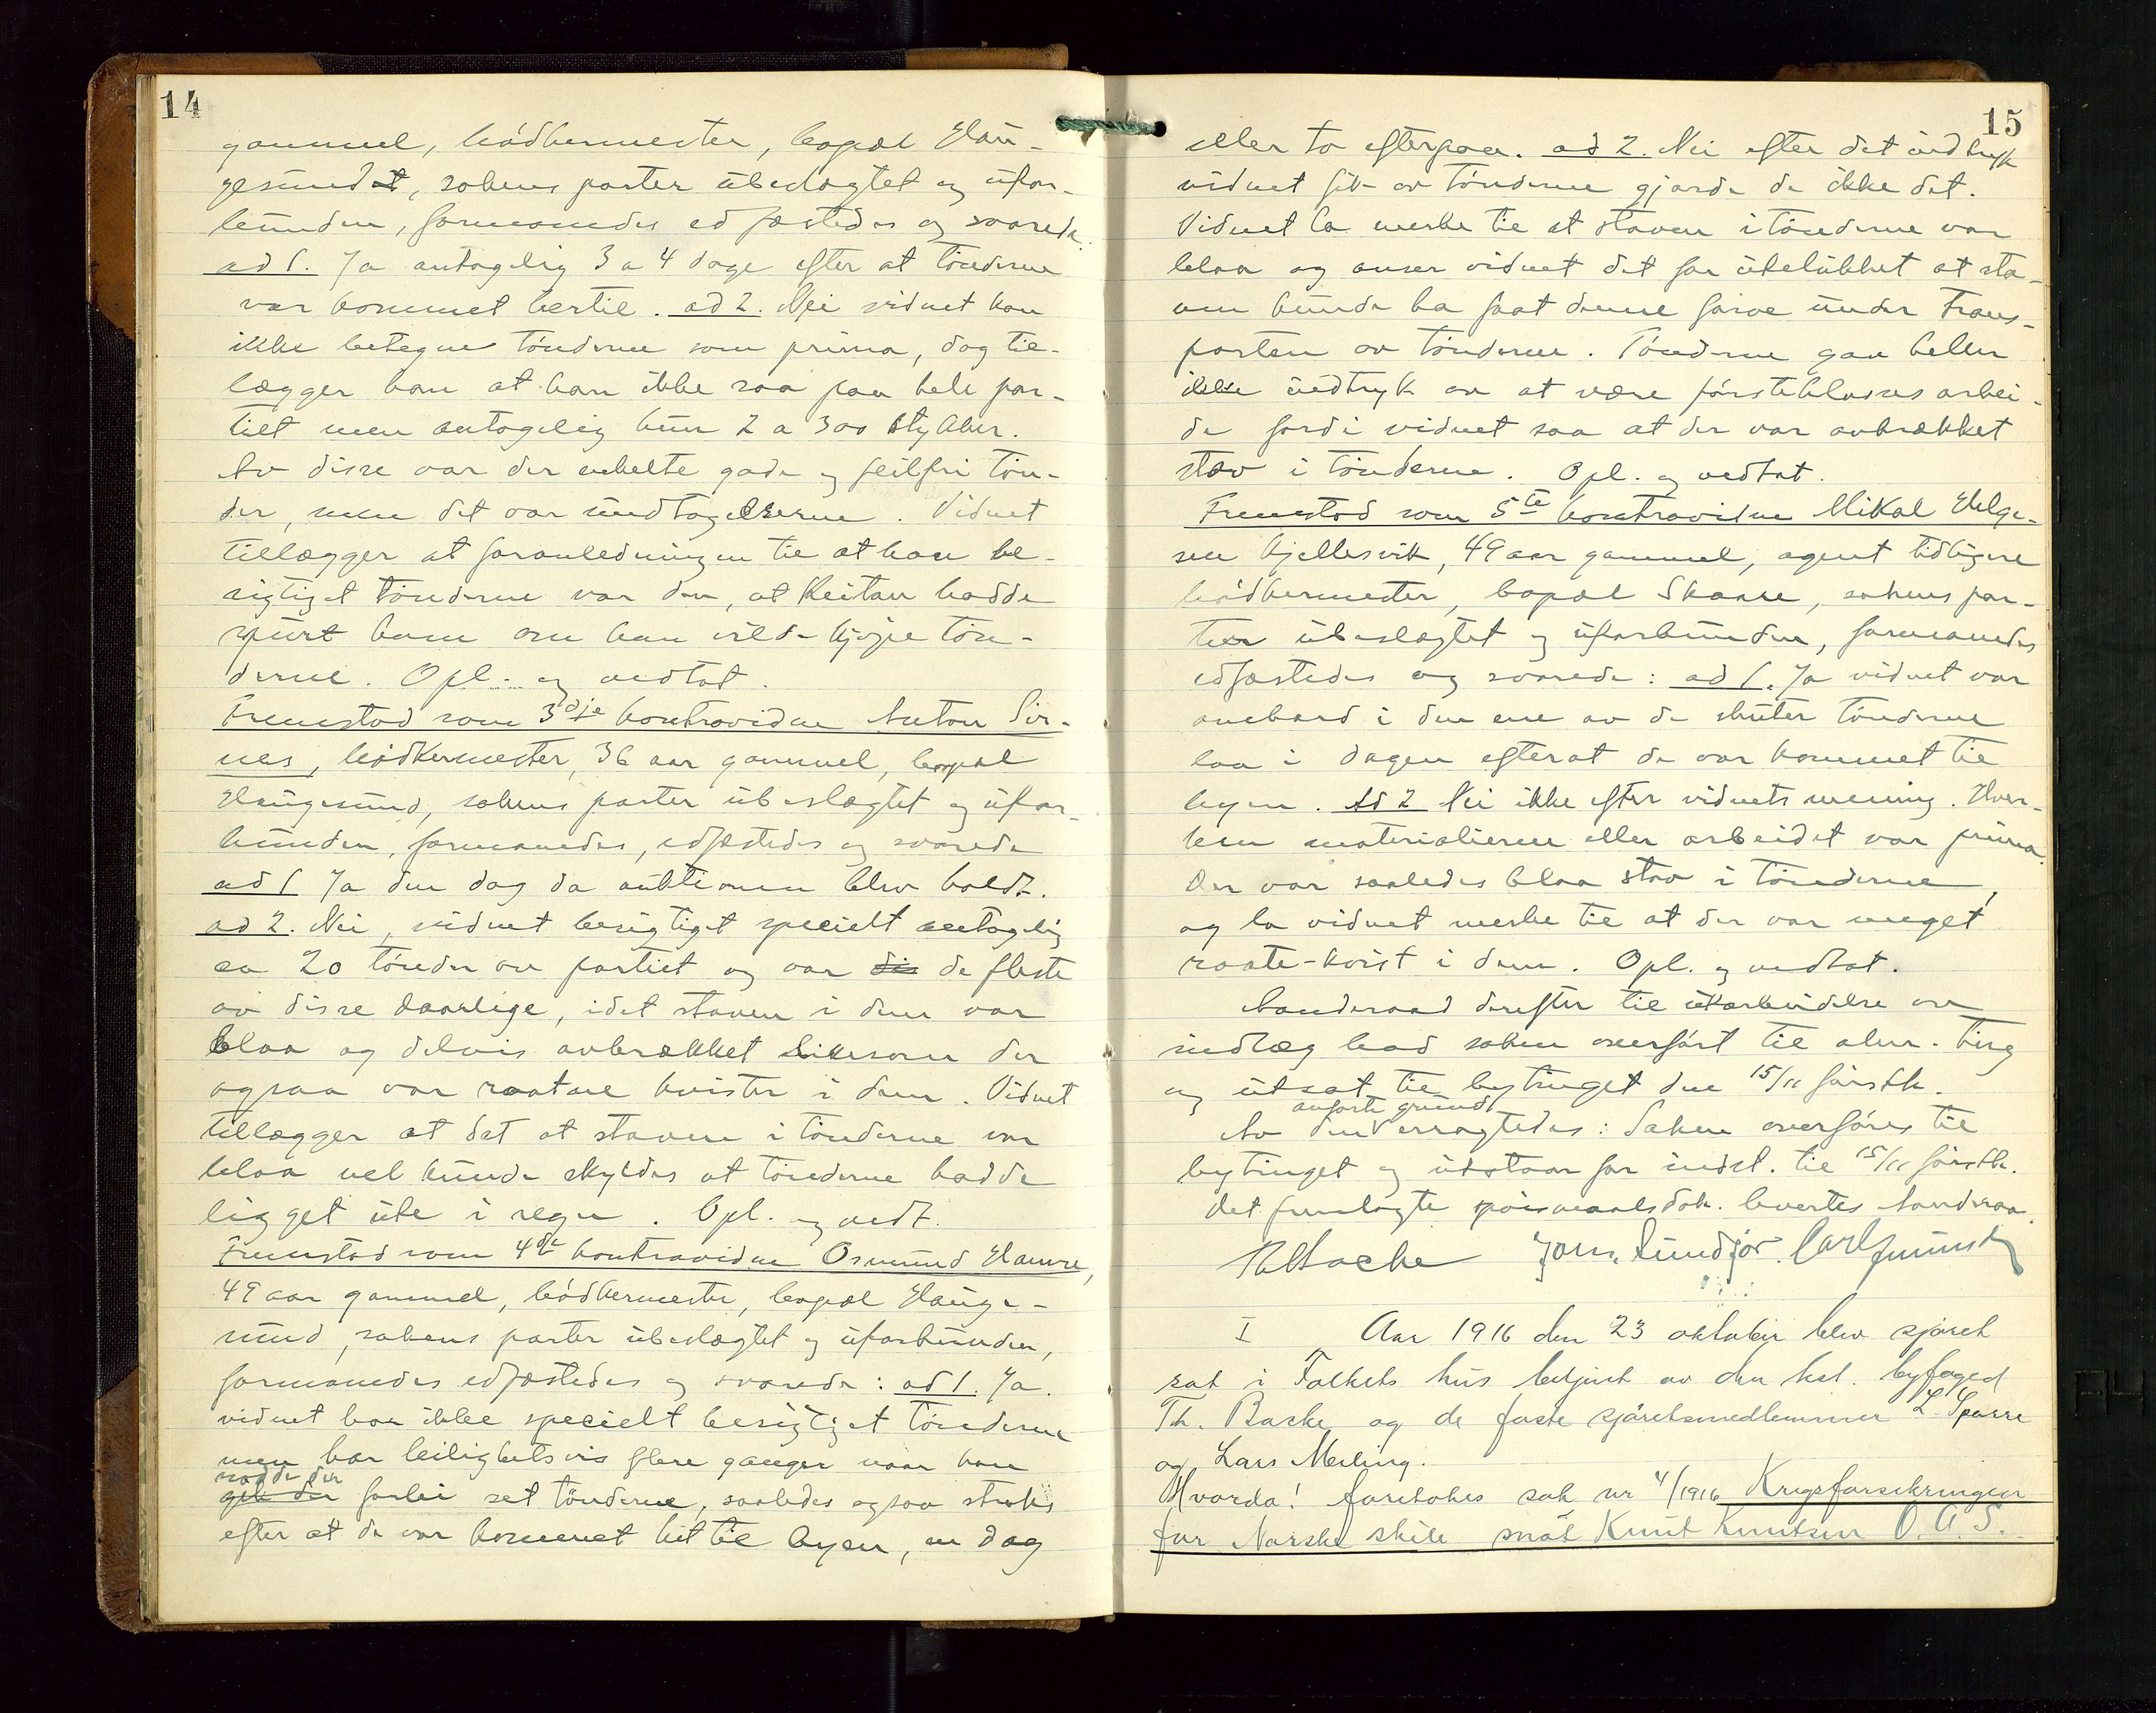 14
gammel, bödkermester, bopæl Hau-
gesund, sakens parter ubeslægtet og ufor-
bunden, formanedes edfæstedes og svarede
ad 1. Ja antagelig 3 a 4 dage efter at tönderne
var kommet hertil. ad 2. Nei vidnet kan
ikke betegne tönderne som prima, dog til-
lægger han at han ikke saa paa hele par-
tiet men antagelig kun 2 a 300 stykker.
Av disse var der enkelte gode og feilfri tön-
der, men det var undtagelserne. Vidnet
tillægger at foranledningen til at han be-
sigtiget tönderne var den, at Reitan hadde
spurt ham om han vilde kjöpe tön-
derne. Opl. og vedtat.
Fremstod som 3dje kontravidne Anton Sir-
nes, bödkermester, 36 aar gammel, bopæl
Haugesund, sakens parter ubeslægtet og ufor-
bunden, formanedes, edfæstedes og svarede
ad 1 Ja den dag da auktionen blev holdt.
ad 2. Nei, vidnet besigtiget specielt antagelig
ca 20 tönder av partiet og var dis de fleste
av disse daarlige, idet staven i dem var
blaa og delvis avbrækket likesom der
ogsaa var raatne kvister i dem. Vidnet
tillægger at det at staven i tönderne var
blaa vel kunde skyldes at tönderne hadde
ligget ute i regn. Opl. og vedt.
Fremstod som 4de kontravidne Osmund Hauvre,
49 aar gammel, bödkermester, bopæl Hauge-
sund, sakens parter ubeslægtet og uforbunden,
formanedes edfæstedes og svarede: ad 1. Ja.
vidnet har ikke specielt besigtiget tönderne
men har leilighetsvis flere ganger naar han
rodde der
gik der forbi set tönderne, saaledes ogsaa straks
efter at de var kommet hit til byen, en dag
15
eller to efterpaa. ad 2. Nei efter det indtryk
vidnet fik av tönderne gjorde de ikke det.
Vidnet la merke til at staven i tönderne var
blaa og anser vidnet det for utelukket at sta-
ven kunde ha faat denne farve under Trans-
porten av tönderne. Tönderne gav heller
ikke indtryk av at være försteklasses arbei-
de fordi vidnet saa at der var avbrækket
stav i tönderne. Opl. og vedtat.
Fremstod som 5te kontravidne Mikal Helge-
sen Kjellesvik, 49 aar gammel, agent tidligere
bödkermester, bopæl Skaare, sakens par-
ter ubeslægtet og uforbunden, formanedes
edfæstedes og svarede: ad 1. Ja vidnet var
ombord i den ene av de skuter tönderne
laa i dagen efterat de var kommet til
byen. Ad 2 Nei ikke efter vidnets mening. Hver-
ken materialierne eller arbeidet var prima.
Der var saaledes blaa stav i tönderne,
og la vidnet merke til at der var meget
raate-kvist i dem. Opl. og vedtat.
Sanderaad derefter til utarbeidelse av
indlæg bad saken overfört til alm. ting
og utsat til bytinget den 15/11 förstk.
anförte grund
Av den eragtedes: Saken overföres til
bytinget og utstaar for indst. til 15/11 förstk.
Det fremlagte spörsmaalsdok. levertes Sanderaa.
Th Bache Johs. Sundför. Carl
I Aar 1916 den 23 oktober blev sjöret
sat i Folkets hus betjent av den kst. byfoged
Th. Bache og de faste sjöretsmedlemmer L. Sparre
og Lars Meling.
Hvorda! foretokes sak nr 4/1916 Krigsforsikringen
for Norske skibe mot Knut Knutsen O.A.S.